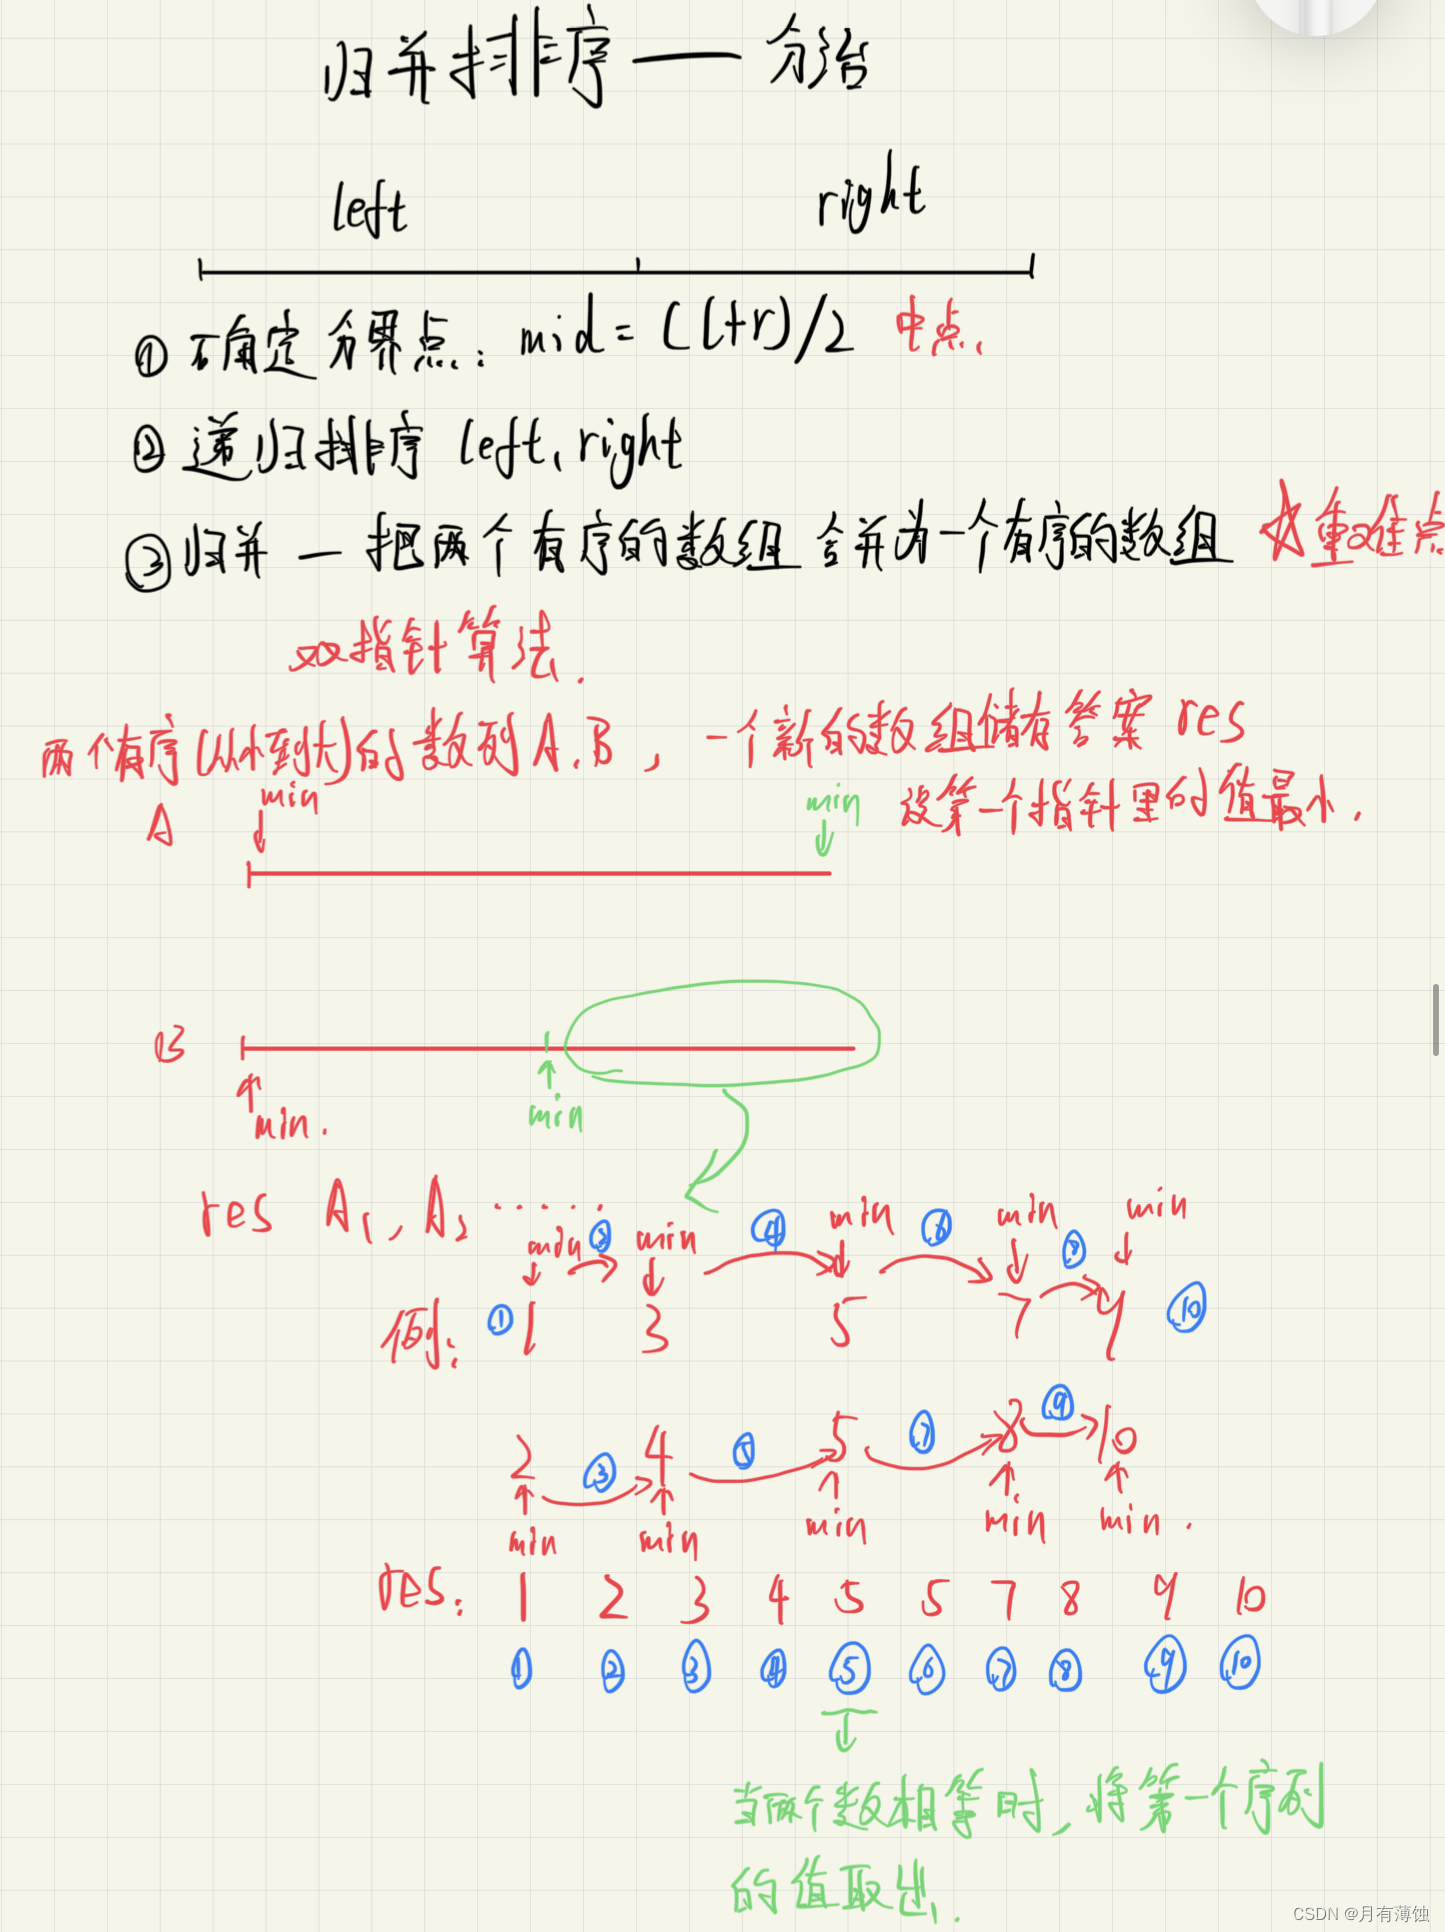 归并排序 — 分治
left right
① 确定分界点: mid = (l+r)/2 中点.
② 递归排序 left, right
③ 归并 — 把两个有序的数组合并为一个有序的数组 ☆重难点
双指针算法.
两个有序(从小到大)的数列A.B, 一个新的数组储存答案 res
A min min 设第一个指针里的值最小.
B
min. min
res A₁, A₂ ......
min ② min ④ min ⑥ min ⑧ min
例: ① 1 3 5 7 9 ⑩
2 ③ 4 ⑤ 5 ⑦ 8 ⑨ 10
min min min min min.
res: 1 2 3 4 5 5 7 8 9 10
① ② ③ ④ ⑤ ⑥ ⑦ ⑧ ⑨ ⑩
当两个数相等时, 将第一个序列
的值取出.
CSDN @月有薄蚀